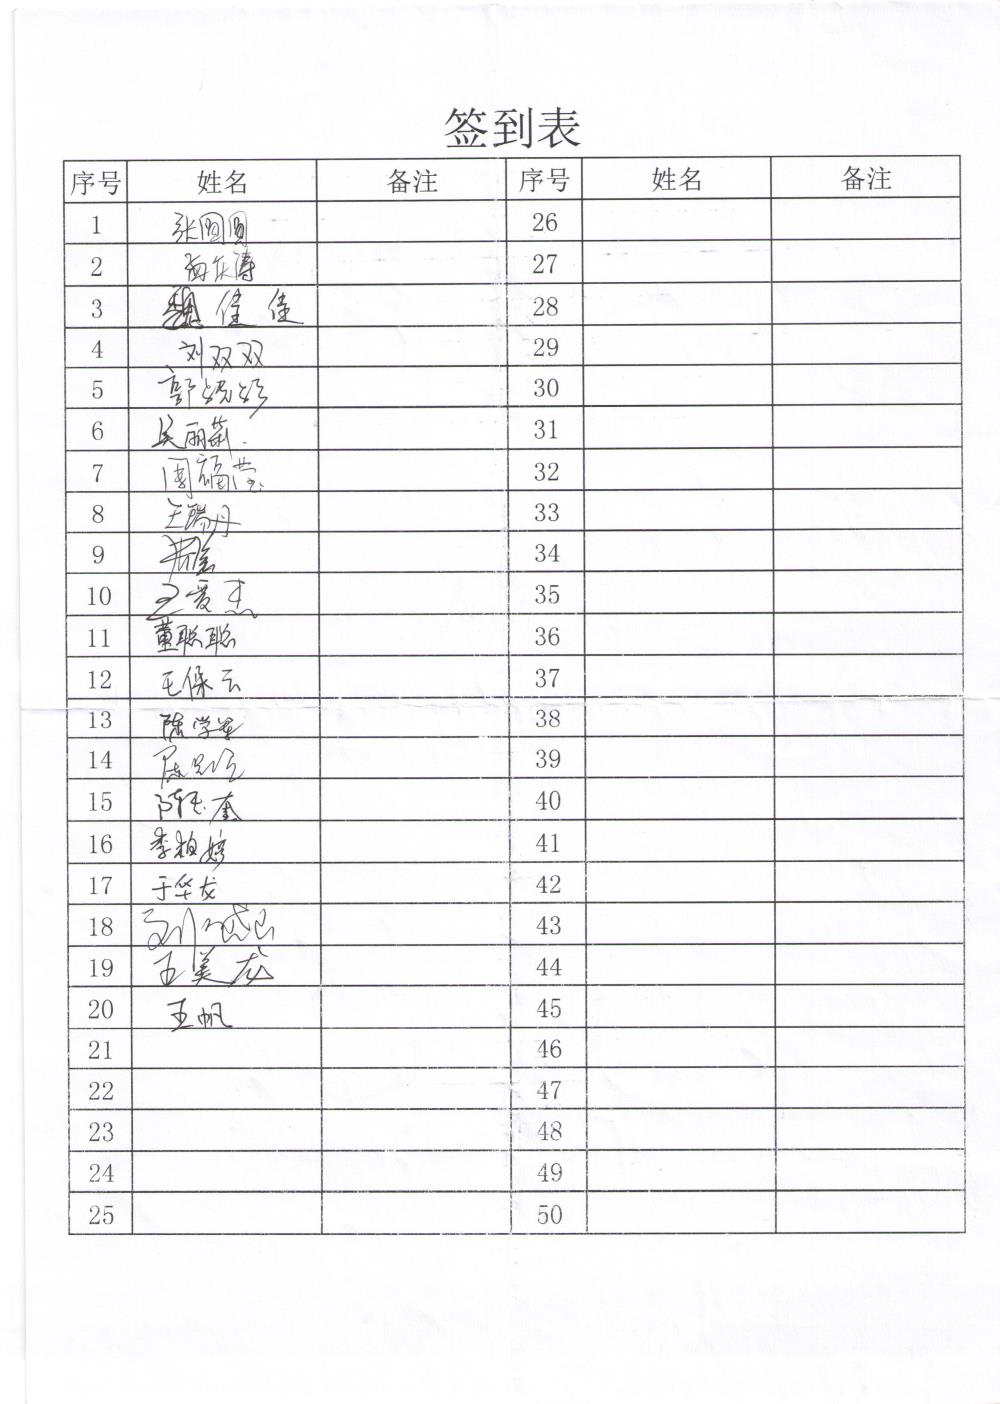 签到表
序号 姓名 备注 序号 姓名 备注
1 张圆圆 26
2 27
3 魏佳佳 28
4 刘双双 29
5 郭 30
6 吴丽莉 31
7 周福莹 32
8 王瑞丹 33
9 34
10 王爱杰 35
11 董聪聪 36
12 毛保云 37
13 陈学军 38
14 陈 39
15 陈 奎 40
16 李柏婷 41
17 于华龙 42
18 刘 43
19 王美龙 44
20 王帆 45
21 46
22 47
23 48
24 49
25 50